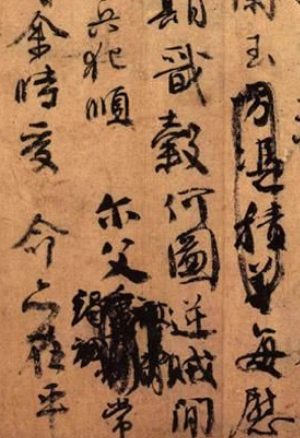 蘭玉方憑積善每慰
期戩穀何圖逆賊間
兵犯順 尔父竭誠常
余時受 命亦在平